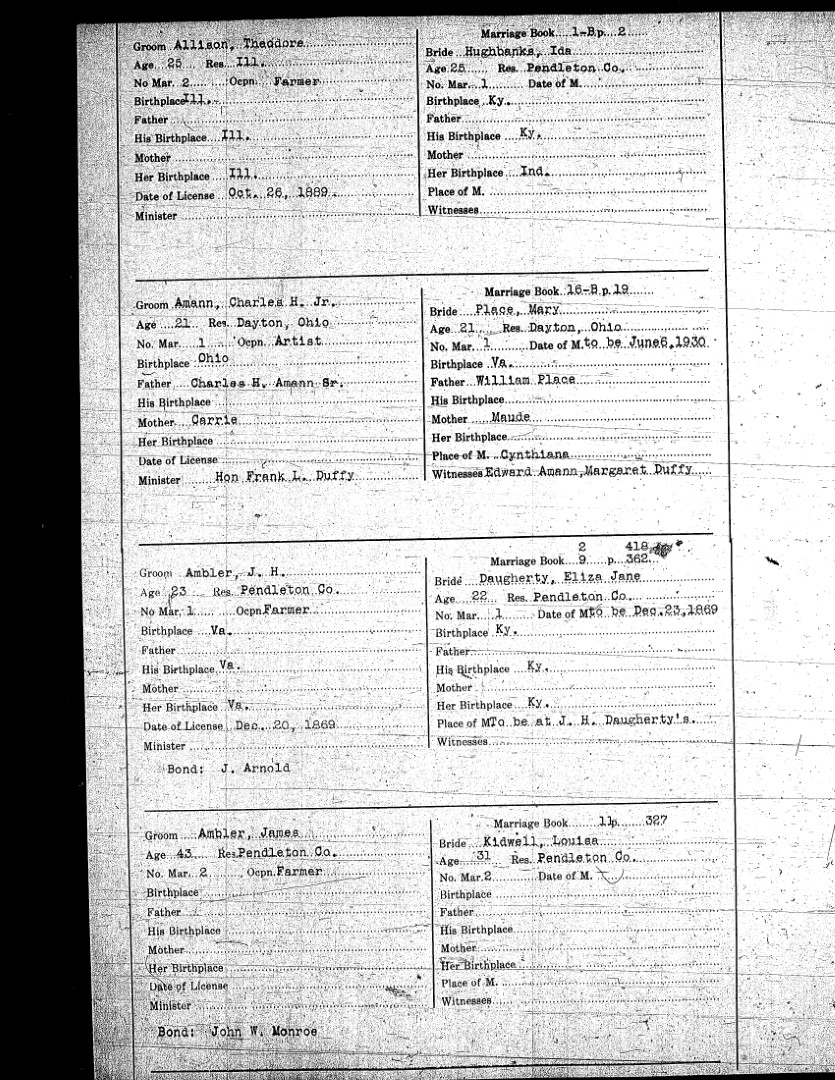 Groom Allison, Theodore
Age 25 Res. Ill.
No Mar. 2 Ocpn. Farmer
Birthplace Ill.
Father
His Birthplace Ill.
Mother
Her Birthplace Ill.
Date of License Oct. 26, 1889
Minister
Marriage Book 1-B p. 2
Bride Hughbanks, Ida
Age 25 Res. Pendleton Co.
No. Mar. 1 Date of M.
Birthplace Ky.
Father
His Birthplace Ky.
Mother
Her Birthplace Ind.
Place of M.
Witnesses
Groom Amann, Charles H. Jr.
Age 21 Res. Dayton, Ohio
No. Mar. 1 Ocpn. Artist
Birthplace Ohio
Father Charles H. Amann Sr.
His Birthplace
Mother Carrie
Her Birthplace
Date of License
Minister Hon Frank L. Duffy
Marriage Book 16-B p. 19
Bride Place, Mary
Age 21 Res. Dayton, Ohio
No. Mar. 1 Date of M. to be June 6, 1930
Birthplace Va.
Father William Place
His Birthplace
Mother Maude
Her Birthplace
Place of M. Cynthiana
Witnesses Edward Amann, Margaret Duffy
Groom Ambler, J. H.
Age 23 Res. Pendleton Co.
No Mar. 1 Ocpn Farmer
Birthplace Va.
Father
His Birthplace Va.
Mother
Her Birthplace Va.
Date of License Dec. 20, 1869
Minister
Bond: J. Arnold
2 418
Marriage Book 9 p. 362
Bride Daugherty, Eliza Jane
Age 22 Res. Pendleton Co.
No. Mar. 1 Date of M to be Dec. 23, 1869
Birthplace Ky.
Father
His Birthplace Ky.
Mother
Her Birthplace Ky.
Place of M To be at J. H. Daugherty's.
Witnesses
Groom Ambler, James
Age 43 Res Pendleton Co.
No. Mar. 2 Ocpn. Farmer
Birthplace
Father
His Birthplace
Mother
Her Birthplace
Date of License
Minister
Bond: John W. Monroe
Marriage Book 11 p. 327
Bride Kidwell, Louisa
Age 31 Res. Pendleton Co.
No. Mar. 2 Date of M.
Birthplace
Father
His Birthplace
Mother
Her Birthplace
Place of M.
Witnesses